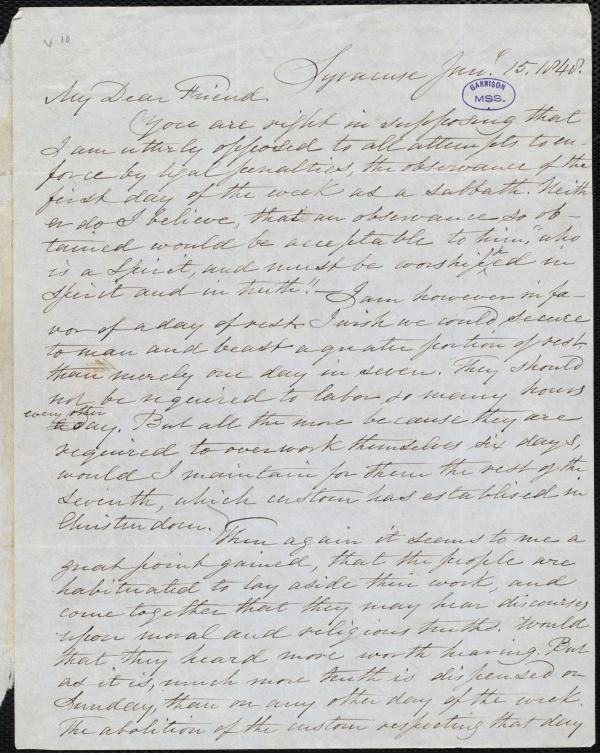 V 10
Syracuse Jany. 15. 1848.
GARRISON
MSS.
My Dear Friend.
You are right in supposing that
I am utterly opposed to all attempts to en-
force by legal penalties, the observance of the
first day of the week as a sabbath. Neith
er do I believe, that an observance so ob-
tained would be acceptable to him, "who
is a Spirit, and must be worshipped in
spirit and in truth". — I am however in fa-
vor of a day of rest. I wish we could secure
to man and beast a greater portion of rest
than merely one day in seven. They should
not be required to labor so many hours
every other
day. But all the more because they are
required to overwork themselves six days,
would I maintain for them the rest of the
seventh, which custom has establised in
Christendom.
Then again it seems to me a
great point gained, that the people are
habituated to lay aside their work, and
come together that they may hear discourses
upon moral and religious truths. Would
that they heard more worth hearing. But
as it is, much more truth is dispensed on
Sunday, than on any other day of the week.
The abolition of the custom respecting that day